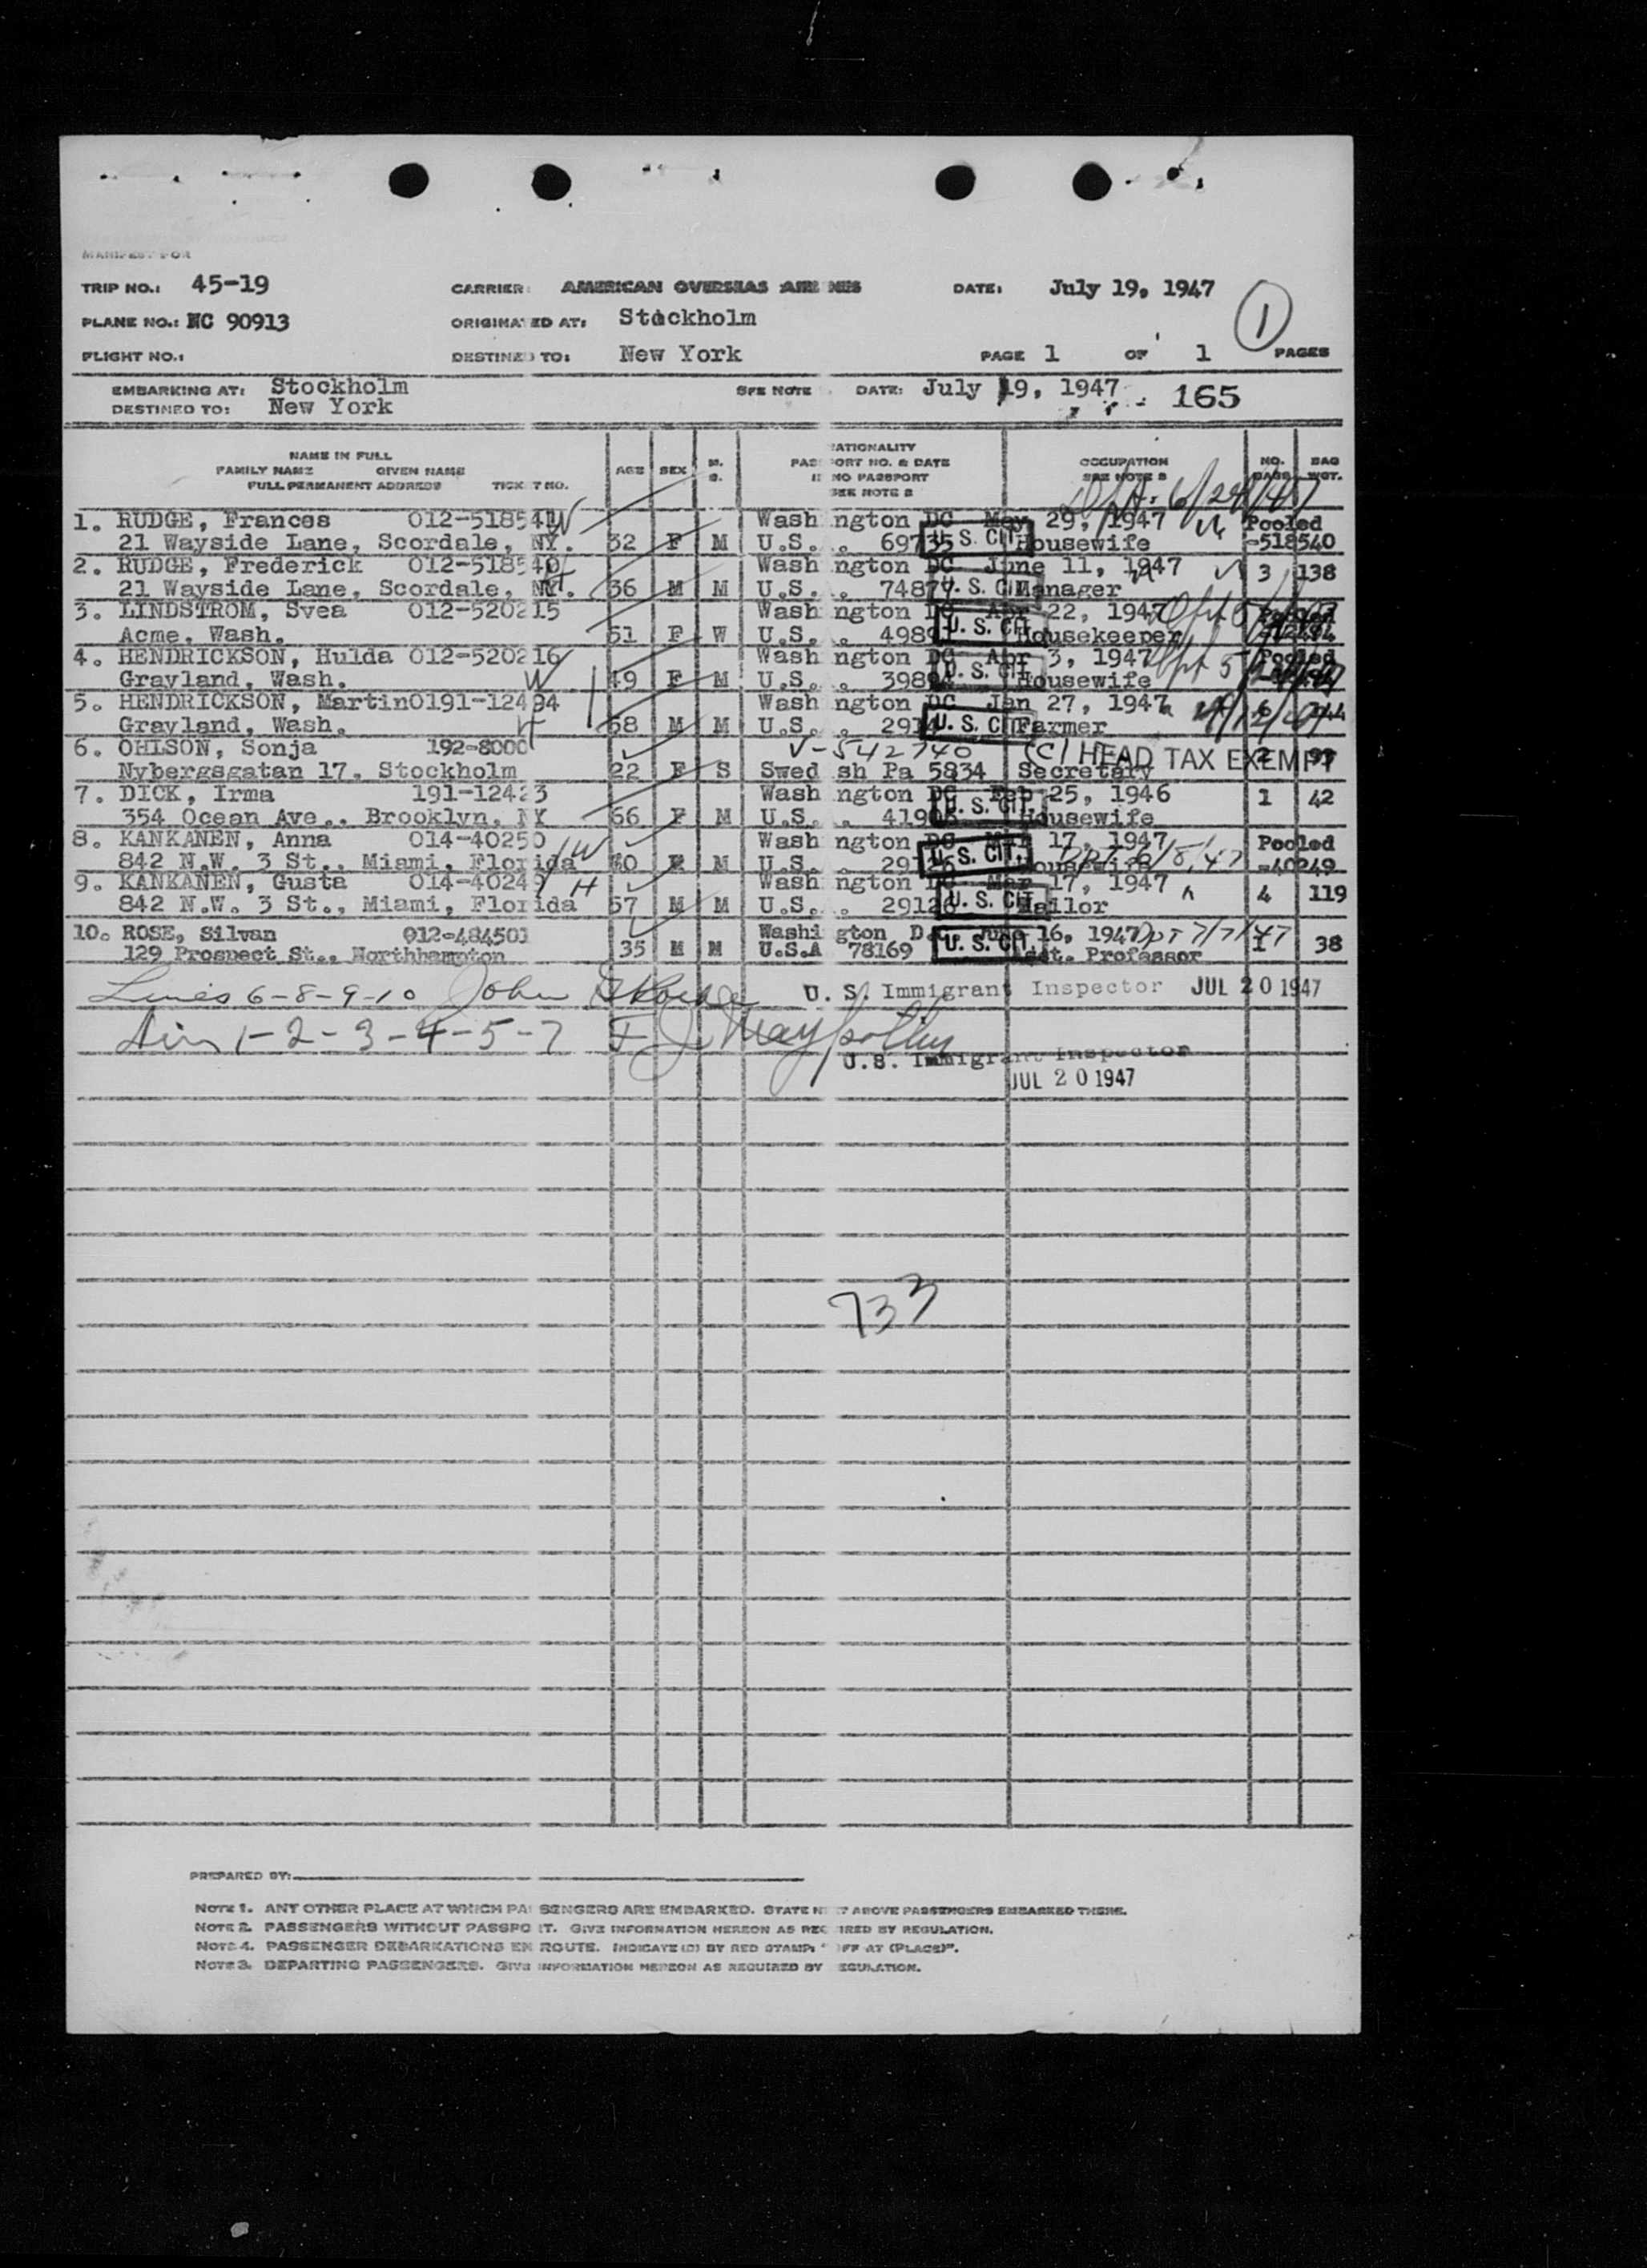 MANIFEST FOR
TRIP NO.: 45-19 CARRIER: AMERICAN OVERSEAS AIRLINES DATE: July 19, 1947
PLANE NO.: NC 90913 ORIGINATED AT: Stockholm 1
FLIGHT NO.: DESTINED TO: New York PAGE 1 OF 1 PAGES
EMBARKING AT: Stockholm SEE NOTE DATE: July 19, 1947 165
DESTINED TO: New York
NAME IN FULL NATIONALITY
FAMILY NAME GIVEN NAME AGE SEX M. S. PASSPORT NO. & DATE OCCUPATION NO. BAGS BAG WGT.
FULL PERMANENT ADDRESS TICKET NO. IF NO PASSPORT SEE NOTE 2
SEE NOTE 2 6/24/47
1. RUDGE, Frances 012-518541 W Washington DC May 29, 1947 Pooled
21 Wayside Lane, Scordale, NY. 32 F M U.S. 69735 U. S. CIT. Housewife -518540
2. RUDGE, Frederick 012-518540 H Washington DC June 11, 1947 3 138
21 Wayside Lane, Scordale, NY. 36 M M U.S. 7487 U. S. CIT. Manager
3. LINDSTROM, Svea 012-520215 Washington DC Apr 22, 1947 Pooled
Acme, Wash. 51 F W U.S. 4989 U. S. CIT. Housekeeper -12494
4. HENDRICKSON, Hulda 012-520216 W Washington DC Apr 3, 1947 Pooled
Grayland, Wash. W 49 F M U.S. 3989 U. S. CIT. Housewife
5. HENDRICKSON, Martin 0191-12494 Washington DC Jan 27, 1947 6
Grayland, Wash. H 58 M M U.S. 291 U. S. CIT. Farmer
6. OHLSON, Sonja 192-8000 V-542740 (C) HEAD TAX EXEMPT 2
Nybergsgatan 17, Stockholm 22 F S Swedish Pa 5834 Secretary
7. DICK, Irma 191-12423 Washington DC Feb 25, 1946 1 42
354 Ocean Ave., Brooklyn, NY 66 F M U.S. 4190 U. S. CIT. Housewife
8. KANKANEN, Anna 014-40250 W Washington DC Mar 17, 1947 Pooled
842 N.W. 3 St., Miami, Florida 40 F M U.S. 29126 U. S. CIT. Housewife -40249
9. KANKANEN, Gusta 014-40249 H Washington DC Mar 17, 1947 4 119
842 N.W. 3 St., Miami, Florida 57 M M U.S. 29126 U. S. CIT. Tailor
10. ROSE, Silvan 012-484501 Washington D.C. June 16, 1947 Dpt 7/7/47 1 38
129 Prospect St., Northhampton 35 M M U.S.A 78169 U. S. CIT. Asst. Professor
Lines 6-8-9-10 John U. S. Immigrant Inspector JUL 20 1947
Lin 1-2-3-4-5-7 F J
U.S. Immigrant Inspector
JUL 20 1947
733
PREPARED BY:
NOTE 1. ANY OTHER PLACE AT WHICH PASSENGERS ARE EMBARKED. STATE NEXT ABOVE PASSENGERS EMBARKED THERE.
NOTE 2. PASSENGERS WITHOUT PASSPORT. GIVE INFORMATION HEREON AS REQUIRED BY REGULATION.
NOTE 4. PASSENGER DEBARKATIONS EN ROUTE. INDICATE (D) BY RED STAMP: "OFF AT (PLACE)".
NOTE 3. DEPARTING PASSENGERS. GIVE INFORMATION HEREON AS REQUIRED BY REGULATION.